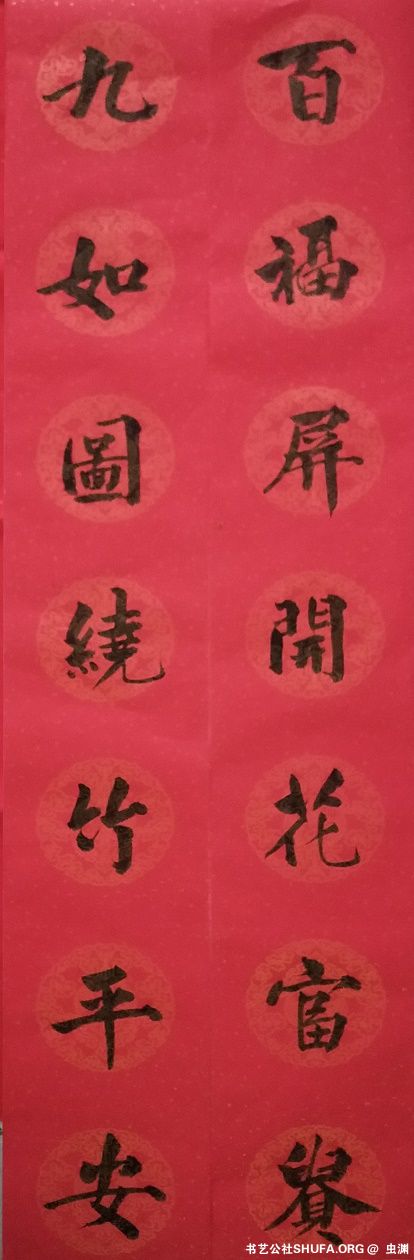 百福屏開花富貴
九如圖繞竹平安
书艺公社SHUFA.ORG @ 虫渊